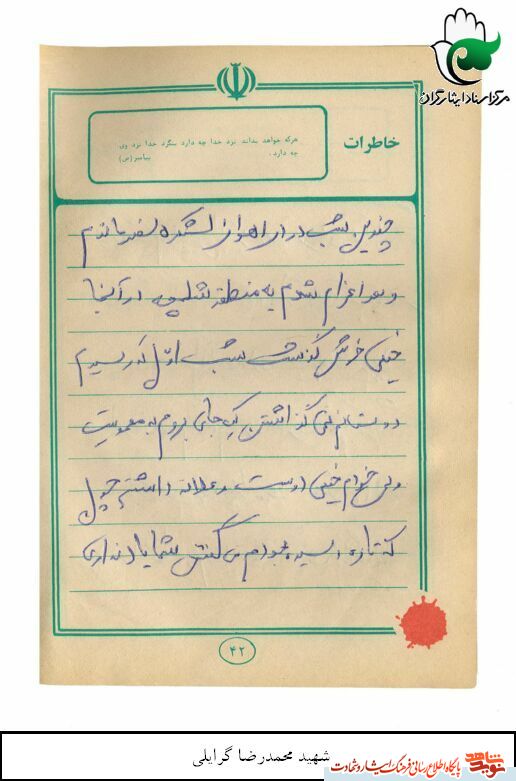 مرکز اسناد ایثارگران
خاطرات
هرکه خواهد بداند نزد خدا چه دارد بنگرد خدا نزد وی
چه دارد.
پیامبر (ص)
چندین شب در اهواز لشکر ماندم
و بعد اعزام شدم به منطقه شلمچه در آنجا
خیلی خوش گذشت شب اول که رسیدم
دوستانم نمی گذاشتن یک جای بروم به معموریت
ولی خودم خیلی دوست و علاقه داشتم چول
که تازه رسیده بودم می گفتن شما یاد نداری
۴۲
شهید محمدرضا گرایلی
نوید شاهد
پایگاه اطلاع رسانی فرهنگ ایثار و شهادت